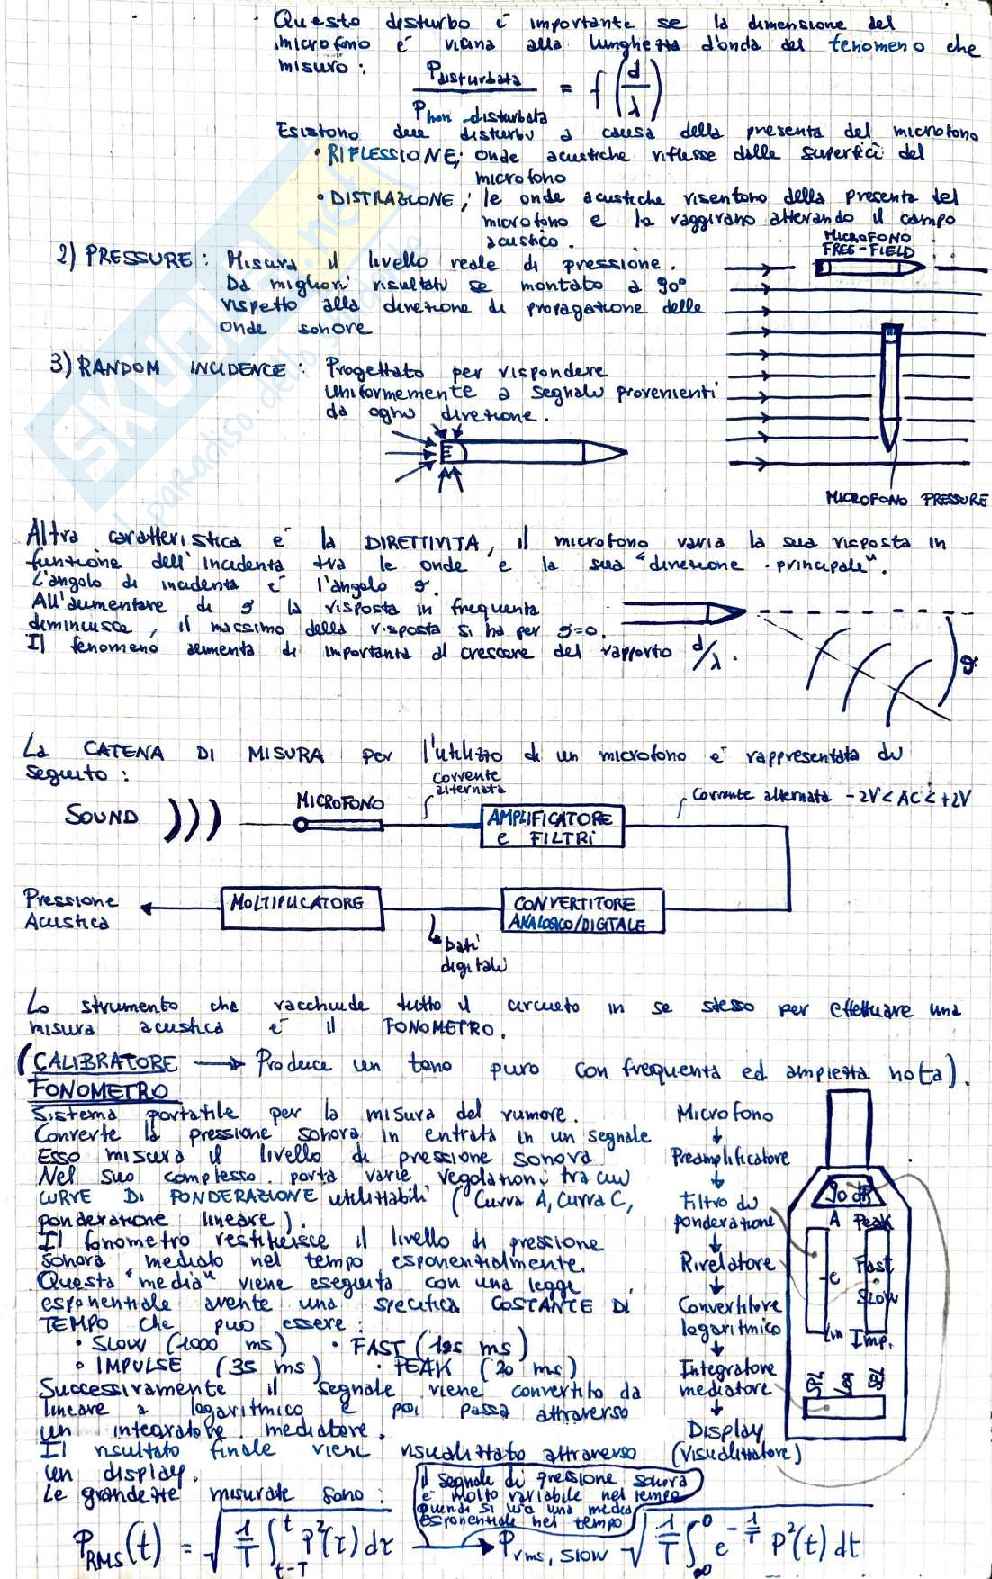 Questo disturbo è importante se la dimensione del
microfono è vicina alla lunghezza d'onda del fenomeno che
misuro:
Pdisturbata / Pnon disturbata = f(d/λ)
Esistono due disturbi a causa della presenza del microfono
• RIFLESSIONE; onde acustiche riflesse dalle superfici del
microfono
• DISTRAZIONE; le onde acustiche risentono della presenza del
microfono e lo raggirano alterando il campo
acustico.
MICROFONO
FREE-FIELD
2) PRESSURE: Misura il livello reale di pressione.
Da migliori risultati se montato a 90°
rispetto alla direzione di propagazione delle
onde sonore
3) RANDOM INCIDENCE: Progettato per rispondere
uniformemente a segnali provenienti
da ogni direzione.
MICROFONO PRESSURE
Altra caratteristica è la DIRETTIVITA, il microfono varia la sua risposta in
funzione dell'incidenza tra le onde e la sua "direzione principale".
L'angolo di incidenza è l'angolo ϑ.
All'aumentare di ϑ la risposta in frequenza
diminuisce, il massimo della risposta si ha per ϑ=0.
Il fenomeno aumenta di importanza al crescere del rapporto d/λ.
ϑ
La CATENA DI MISURA per l'utilizzo di un microfono è rappresentata di
seguito:
SOUND
MICROFONO
corrente
alternata
AMPLIFICATORE
e FILTRI
Corrente alternata -2V<AC<+2V
Pressione
Acustica
MOLTIPLICATORE
dati
digitali
CONVERTITORE
ANALOGICO/DIGITALE
Lo strumento che racchiude tutto il circuito in se stesso per effettuare una
misura acustica è il FONOMETRO.
(CALIBRATORE → Produce un tono puro con frequenza ed ampiezza nota).
FONOMETRO
Sistema portatile per la misura del rumore.
Converte la pressione sonora in entrata in un segnale
Esso misura il livello di pressione sonora
Nel suo complesso porta varie regolazioni tra cui
CURVE DI PONDERAZIONE utilizzabili (Curva A, Curva C,
ponderazione lineare).
Il fonometro restituisce il livello di pressione
sonora mediato nel tempo esponenzialmente.
Questa "media" viene eseguita con una legge
esponenziale avente una specifica COSTANTE DI
TEMPO che può essere:
• SLOW (1000 ms) • FAST (125 ms)
• IMPULSE (35 ms) • PEAK (20 ms)
Successivamente il segnale viene convertito da
lineare a logaritmico e poi passa attraverso
un integratore mediatore.
Il risultato finale viene visualizzato attraverso
un display.
Le grandezze misurate sono:
Microfono
Preamplificatore
Filtro di
ponderazione
Rivelatore
Convertitore
logaritmico
Integratore
mediatore
Display
(visualizzatore)
70 dB
A Peak
C Fast
Slow
Lin Imp.
SPL
il segnale di pressione sonora
è molto variabile nel tempo
quindi si usa una media
esponenziale nel tempo
PRMS(t) = √(1/T ∫ t-T t P²(τ) dτ → Prms, SLOW √(1/T ∫ ∞ 0 e^-1/T P²(t) dt